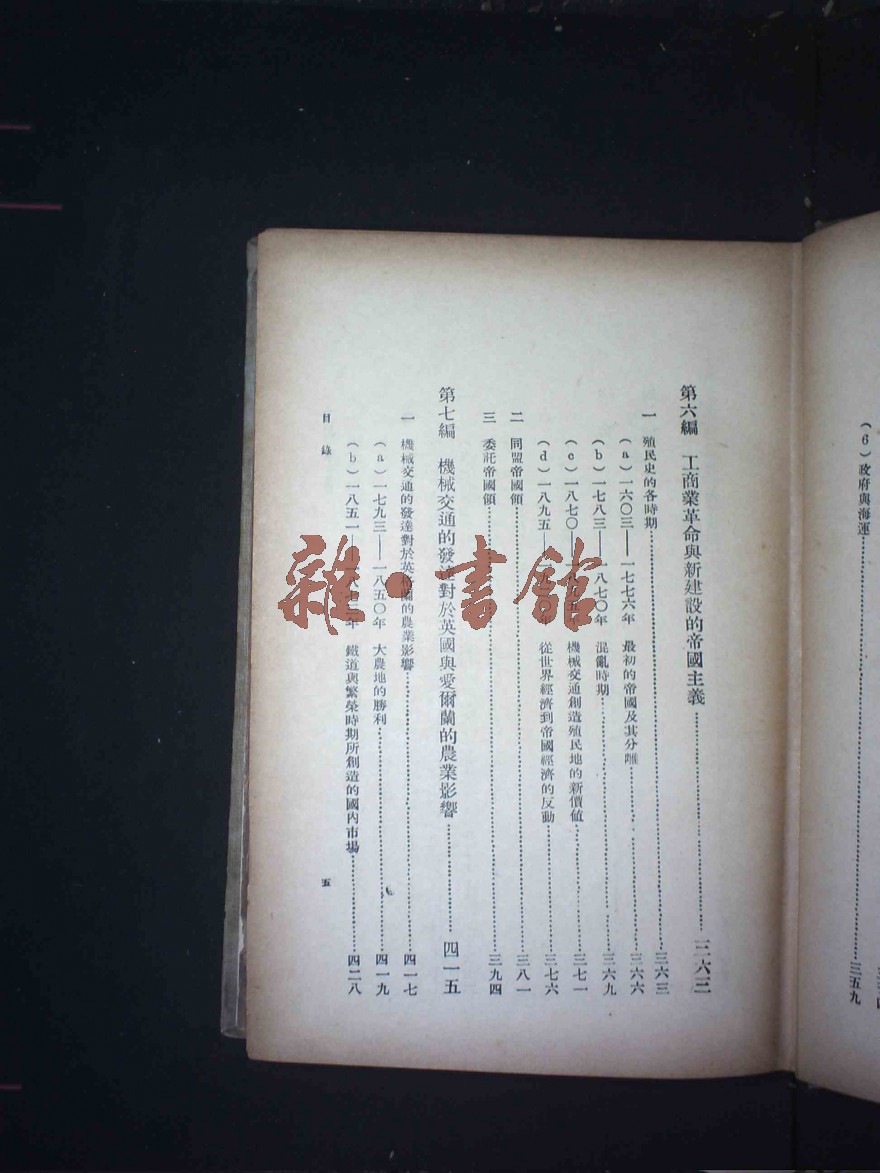 (6)政府與海運……三五九
第六編 工商業革命與新建設的帝國主義……三六三
一 殖民史的各時期……三六三
(a)一六〇三——一七七六年 最初的帝國及其分離……三六六
(b)一七八三——一八七〇年 混亂時期……三六九
(c)一八七〇——年 機械交通創造殖民地的新價值……三七一
(d)一八九五—年 從世界經濟到帝國經濟的反動……三七六
二 同盟帝國領……三八一
三 委託帝國領……三九四
第七編 機械交通的發達對於英國與愛爾蘭的農業影響……四一五
一 機械交通的發達對於英格蘭的農業影響……四一七
(a)一七九三——一八五〇年 大農地的勝利……四一九
(b)一八五一——年 鐵道與繁榮時期所創造的國內市場……四二八
目錄
五
雜·書館